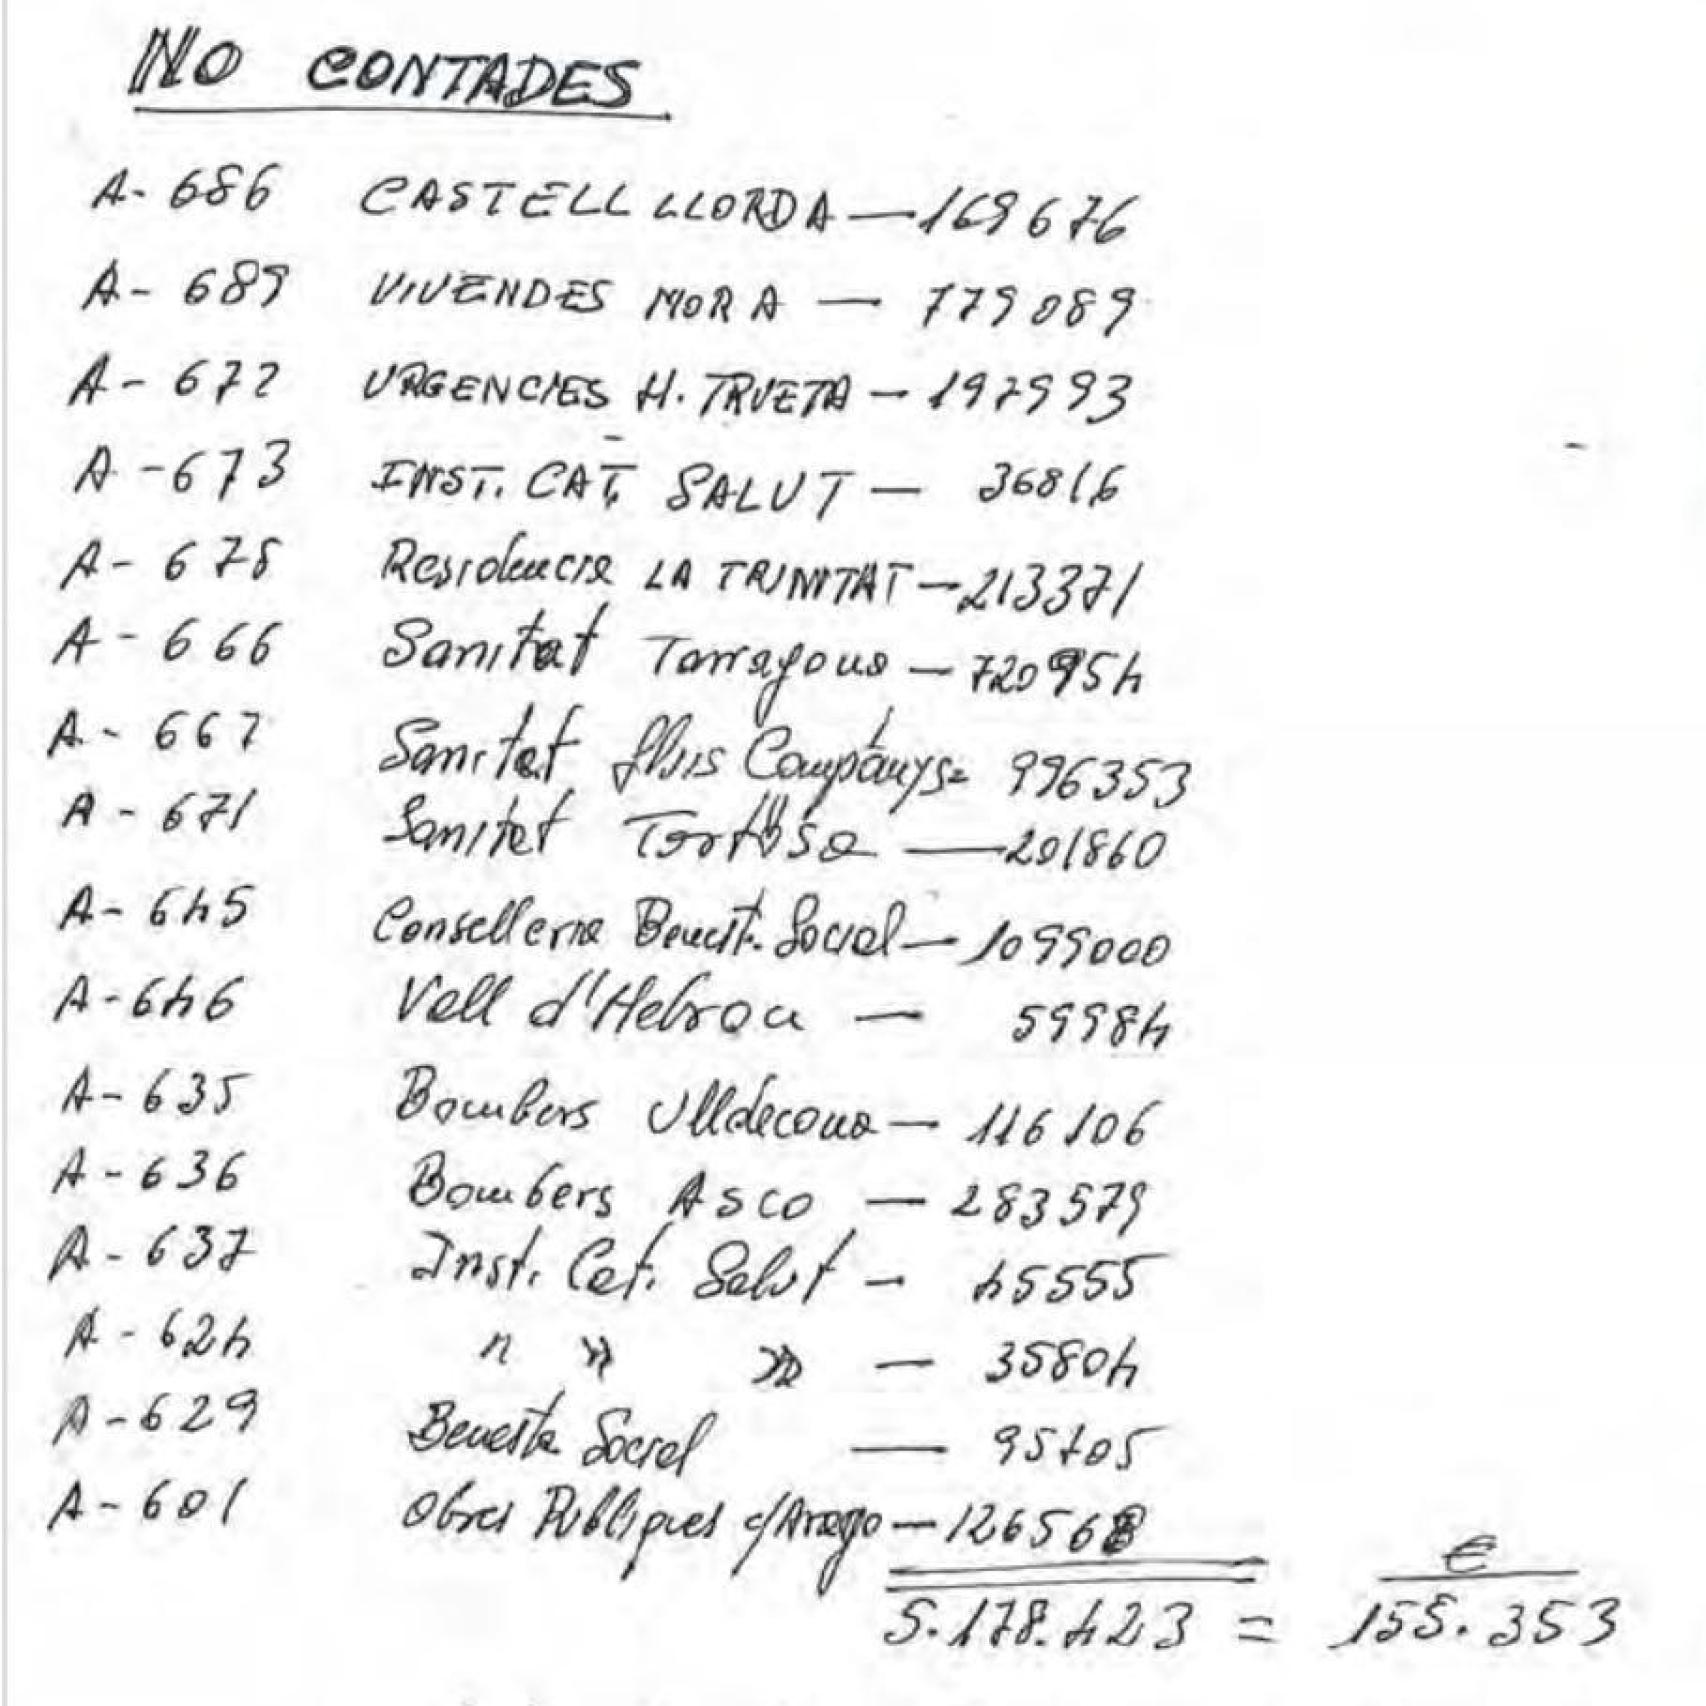 NO CONTADES
A- 686 CASTELL LLORDA — 169676
A- 689 VIVENDES MORA — 779089
A- 672 URGENCIES H. TRUETA — 197993
A-673 INST. CAT. SALUT — 36816
A- 678 Residencia LA TRINITAT — 213371
A- 666 Sanitat Tarragona — 720954
A- 667 Sanitat Lluis Companys = 996353
A- 671 Sanitat Tortosa — 201860
A- 645 Conselleria Benest. Social — 1099000
A-646 Vall d'Hebron — 59984
A- 635 Bombers Ulldecona — 116106
A- 636 Bombers ASCO — 283579
A- 637 Inst. Cat. Salut — 45555
A- 624 " » » — 35804
A-629 Benesta Social — 95705
A-601 Obres Publiques c/Arago — 126568
€
5.178.423 = 155.353